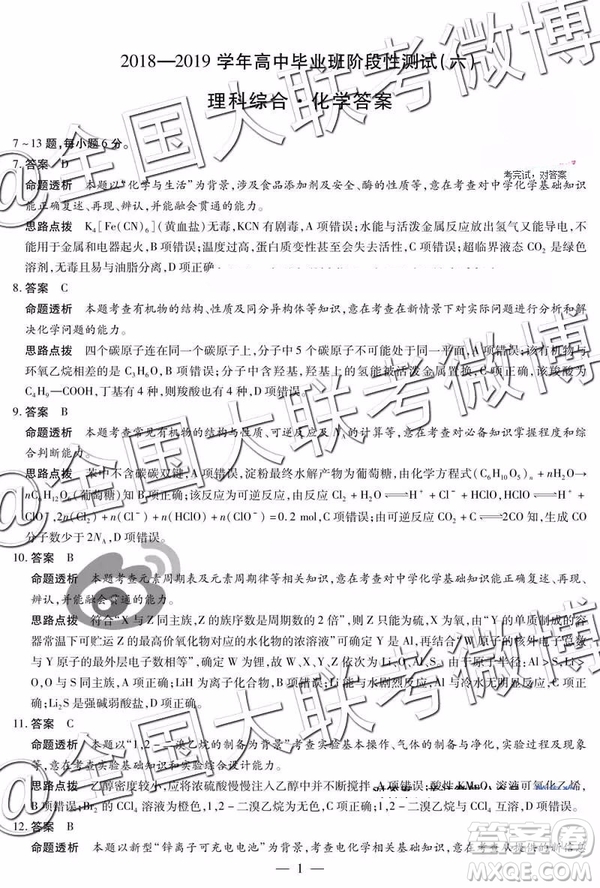 2018—2019学年高中毕业班阶段性测试(六)
理科综合·化学答案
7~13题,每小题6分。
7. 答案 D
考完试,对答案
命题透析 本题以“化学与生活”为背景,涉及食品添加剂与安全、酶的性质等,意在考查对中学化学基础知识能
正确复述、再现、辨认,并能融会贯通的能力。
思路点拨 K₄[Fe(CN)₆](黄血盐)无毒,KCN有剧毒,A项错误;水能与活泼金属反应放出氢气又能导电,不
能用于金属和电器灭火,B项错误;高温
蛋白质变性甚至会失去活性,C项错误;超临界液态CO₂是绿色
溶剂,无毒且易与油脂分离,D项正确
8. 答案 C
命题透析 本题考查有机物的结构、性质及同分异构体等知识,意在考查在新情景下对实际问题进行分析和解
决化学问题的能力。
思路点拨 四个碳原子连在同一个碳原子上,分子中5个碳原子不可能处于同一平面,A项错误;该有机物与
环氧乙烷是
C₃H₆O₃,B项错误;分子中含羟基,羟基上的氢能被活泼金属置换,C项正确;该羧酸为
C₄H₉—COOH,丁基有4种,故羧酸有4种,D项错误。
9. 答案 B
命题透析 本题考查常见有机物的结构与性质,可逆反应及
的计算等,意在考查对必备知识掌握程度和综
合判断能力。
思路点拨 苯中不含碳碳双键,A项错误;淀粉最终水解为葡萄糖,由化学方程式(C₆H₁₀O₅)ₙ+nH₂O→
nC₆H₁₂O₆(葡萄糖)知B项正确;该反应为可逆反应,由Cl₂+H₂O⇌H⁺+Cl⁻+HClO可知
ClO⁻,2n(Cl₂)+n(Cl⁻)+n(HClO)+n(ClO⁻)=0.2 mol,C项错误;
生成CO
分子数少于2N_A,D项错误。
10. 答案 B
命题透析 本题考查元素周期表及元素周期律等相关知识,意在考查对中学化学基础知识能正确复述、再现、
辨认,并能融会贯通的能力。
思路点拨 符合“X与Z同主族,Z的族序数是周期数的2倍”,则X为O,Z为S,由“Y的单质制成的容
器常温下可贮运Z的最高价氧化物对应的水化物的浓溶液”可确定Y是Al,再结合“W原子的
与Y原子的最外层电子数相等”,可确定W为锂,故W、X、Y、Z依次为Li、O、Al、S。原子半径:Al>S
>O,A项错误;LiH为离子化合物,B项正确;C项错误;
Al与水不反应,C项错误;
Li₂S是强碱弱酸盐,D项错误。
11. 答案 C
命题透析 本题以“1,2-二溴乙烷的制备为背景”考查实验基本操作、气体的制备与净化,实验过程及现象
等,意在考查实验能力。
思路点拨 乙醇密度小,应将浓硫酸慢慢注入乙醇中并不断搅拌,A项错误;
可氧化乙烯,
B项错误;Br₂的CCl₄溶液为橙色,1,2-二溴乙烷可溶于CCl₄,C项正确
12. 答案 B
命题透析 本题以新型“锌离子可充电电池”为背景,考查电化学相关基础知识
1
@全国大联考微博
@全国大联考微博
@全国大联考微博
答案圈
MXQE.COM